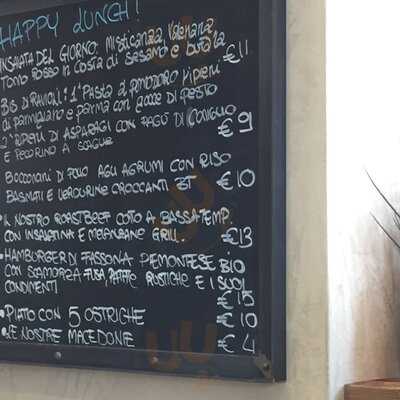 HAPPY LUNCH!
INSALATA DEL GIORNO: MISTICANZA, VALERIANA
TONNO ROSSO IN COSTA DI SESAMO E BUFALA €11
BIS DI RAVIOLI: 1° PASTA AL POMODORO RIPIENI
DI PARMIGIANO E PARMA CON GOCCE DI PESTO
2° RIPIENI DI ASPARAGI CON RAGÙ DI CONIGLIO
E PECORINO A SCAGLIE €9
BOCCONCINI DI POLLO AGLI AGRUMI CON RISO
BASMATI E VERDURINE CROCCANTI €10
IL NOSTRO ROASTBEEF COTTO A BASSA TEMP.
CON INSALATINA E MELANZANE GRILL. €13
• HAMBURGER DI FASSONA PIEMONTESE BIO
CON SCAMORZA FUSA, PATATE RUSTICHE E I SUOI
CONDIMENTI €15
• PIATTO CON 5 OSTRICHE €10
• LE NOSTRE MACEDONIE €4